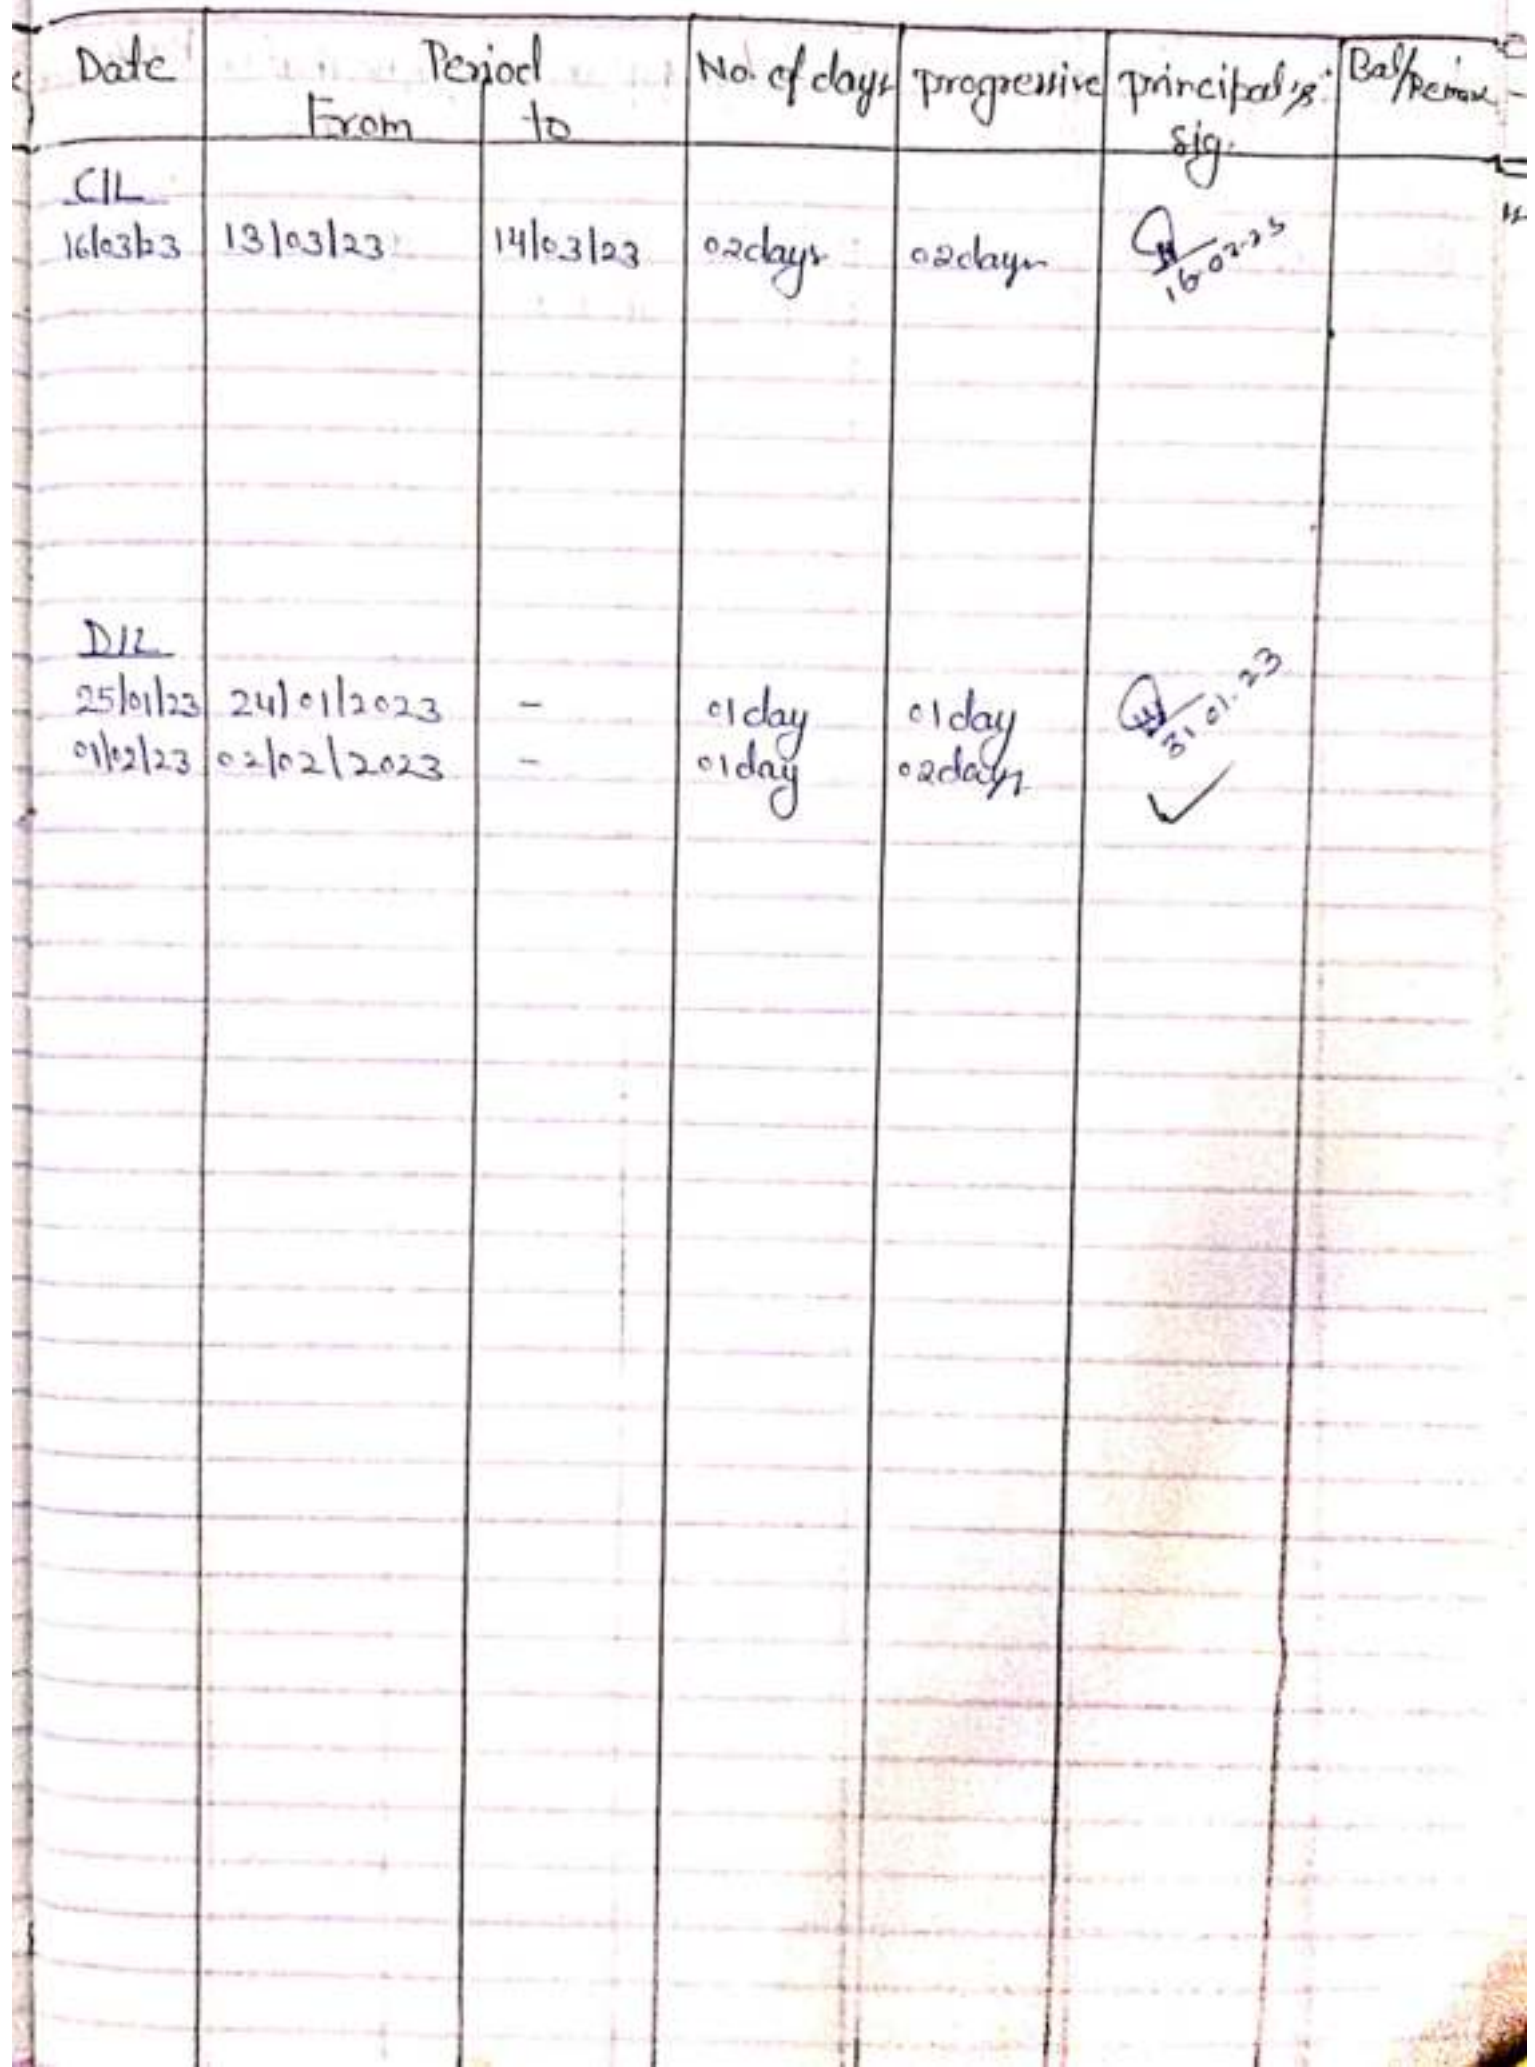 Date Period No. of days progressive principal's Bal/Remark
From to sig.
C/L
16/03/23 13/03/23 14/03/23 02days 02days
16.03.23
D/L
25/01/23 24/01/2023 - 01day 01day 31.01.23
01/02/23 02/02/2023 - 01day 02days ✓